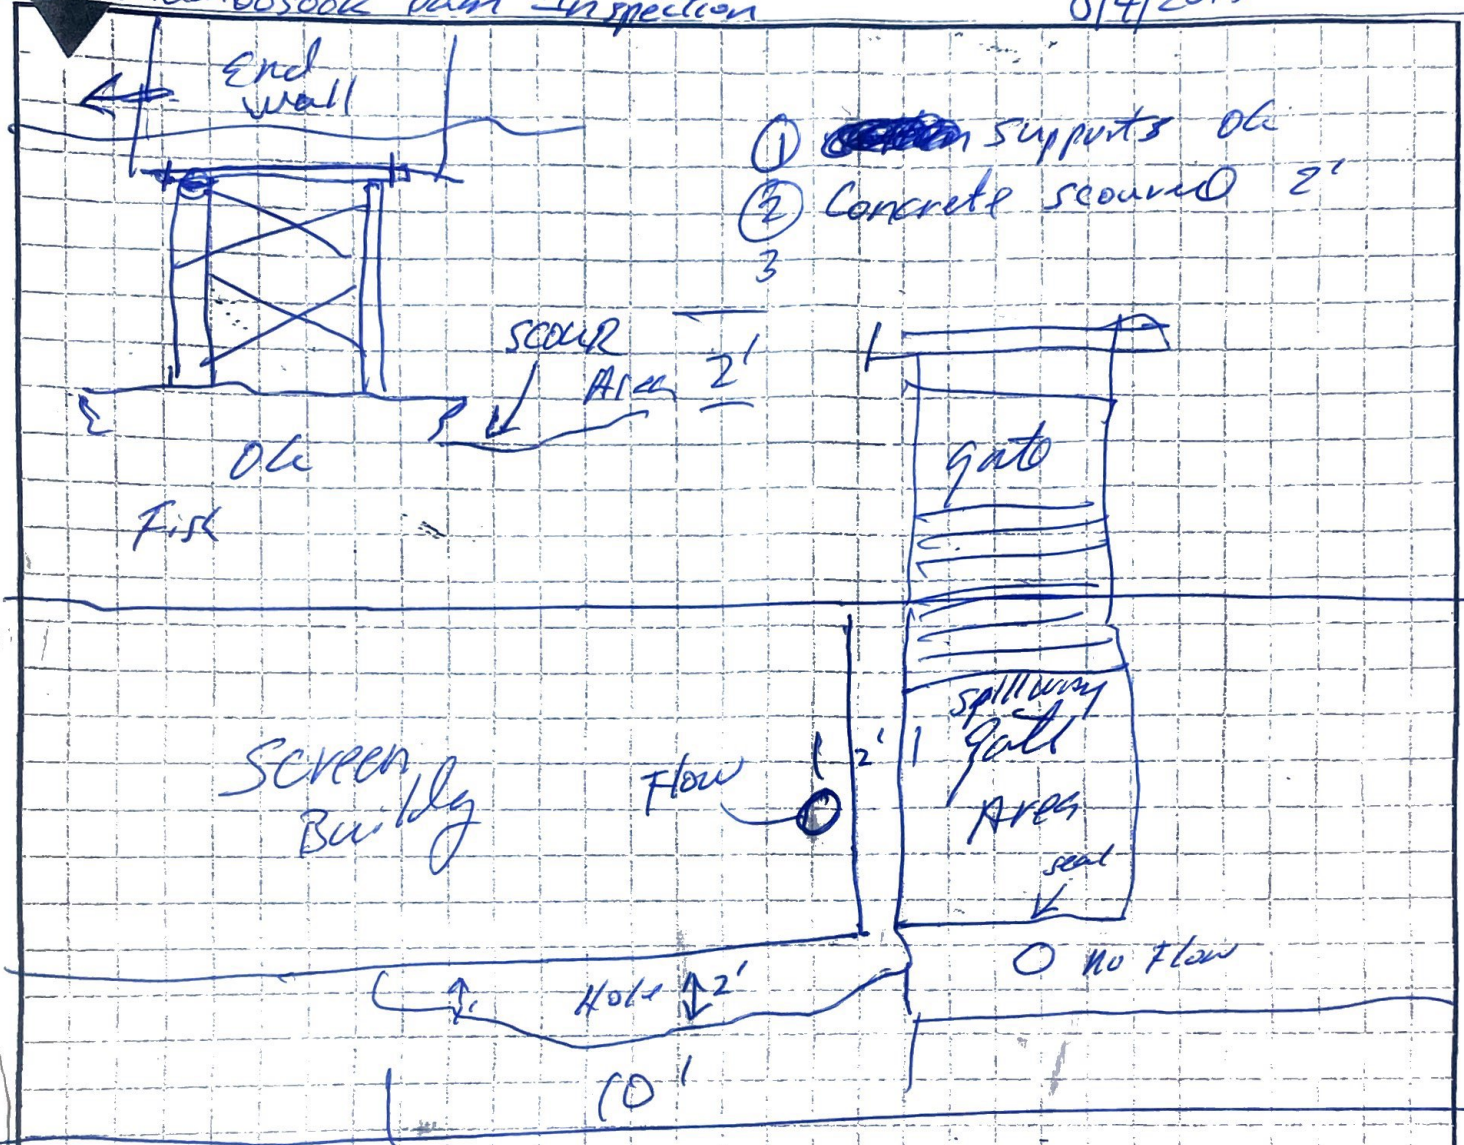 Dam Inspection
End
Wall
① supports ok
② Concrete scoured 2'
3
scour
Area 2'
ok
gate
Fish
spillway
gate
Area
seal
Screen
Building
Flow
2'
Hole 2'
1'
O no Flow
10'